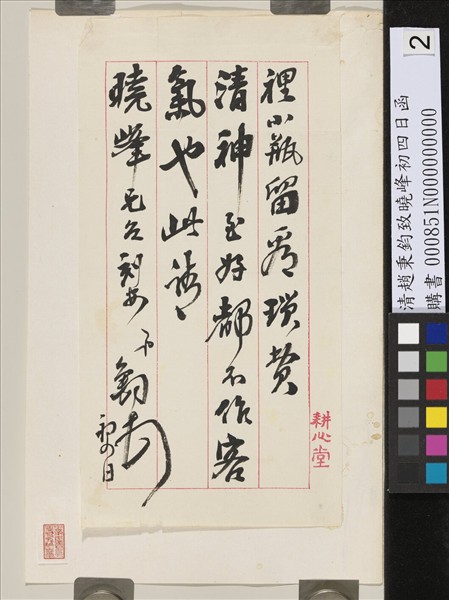 裡小瓶留看瑣費
清神至好都不作客
氣也此請
曉峰兄台刻安 弟鈞頓
初四日
耕心堂
清趙秉鈞致曉峰初四日函
購書 000851N000000000
2